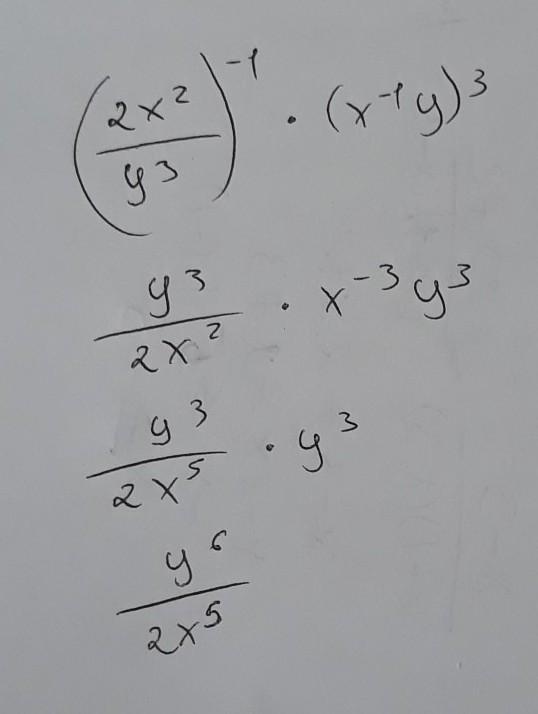 (2x²/y³)⁻¹ · (x⁻¹y)³
y³/2x² · x⁻³y³
y³/2x⁵ · y³
y⁶/2x⁵